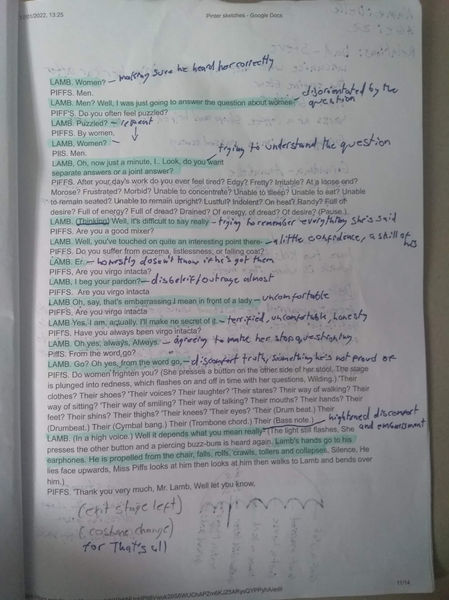 /01/2022, 13:25 Pinter sketches - Google Docs
LAMB. Women? – making sure he heard her correctly
PIFFS. Men.
LAMB. Men? Well, I was just going to answer the question about women – disorientated by the question
PIFFS. Do you often feel puzzled?
LAMB. Puzzled? – repeat
PIFFS. By women.
LAMB. Women?
PIffS. Men. trying to understand the question
LAMB. Oh, now just a minute, I.. Look, do you want
separate answers or a joint answer?
PIFFS. After your day's work do you ever feel tired? Edgy? Fretty? Irritable? At a loose end?
Morose? Frustrated? Morbid? Unable to concentrate? Unable to sleep? Unable to eat? Unable
to remain seated? Unable to remain upright? Lustful? Indolent? On heat? Randy? Full of
desire? Full of energy? Full of dread? Drained? Of energy, of dread? Of desire? (Pause.)
LAMB. (Thinking) Well, it's difficult to say really – trying to remember everything she's said
PIFFS. Are you a good mixer?
LAMB. Well, you've touched on quite an interesting point there – a little confidence, a skill of his
PIFFS. Do you suffer from eczema, listlessness, or falling coat?
LAMB. Er – honestly doesn't know if he's got them
PIFFS. Are you virgo intacta?
LAMB, I beg your pardon? – disbelief/outrage almost
PIFFS. Are you virgo intacta
LAMB Oh, say, that's embarrassing.I mean in front of a lady – uncomfortable
PIFFS, Are you virgo intacta
LAMB Yes, I am, actually. I'll make no secret of it. – terrified, uncomfortable, honesty
PIFFS. Have you always been virgo intacta?
LAMB. Oh yes, always, Always. – agreeing to make her stop questioning
PiffS. From the word go?
LAMB. Go? Oh yes, from the word go, – discomfort truth, something he's not proud of
PIFFS. Do women frighten you? (She presses a button on the other side of her stool, The stage
is plunged into redness, which flashes on and off in time with her questions, Wilding.) 'Their
clothes? Their shoes? 'Their voices? Their laughter? 'Their stares? Their way of walking? Their
way of sitting? 'Their way of smiling? Their way of talking? Their mouths? Their hands? Their
feet? Their shins? Their thighs? 'Their knees? 'Their eyes? 'Their (Drum beat.) Their
(Drumbeat.) Their (Cymbal bang.) Their (Trombone chord.) Their (Bass note.) – hightened discomfort and embarrassment
LAMB. (In a high voice.) Well it depends what you mean really (The light still flashes, She
presses the other button and a piercing buzz-buts is heard again, Lamb's hands go to his
earphones. He is propelled from the chair, falls, rolls, crawls, tollers and collapses. Silence, He
lies face upwards, Miss Piffs looks at him then looks at him then walks to Lamb and bends over
him.)
PIFFS, 'Thank you very much, Mr. Lamb, Well let you know,
(exit stage left)
(costume change)
for That's all
11/14